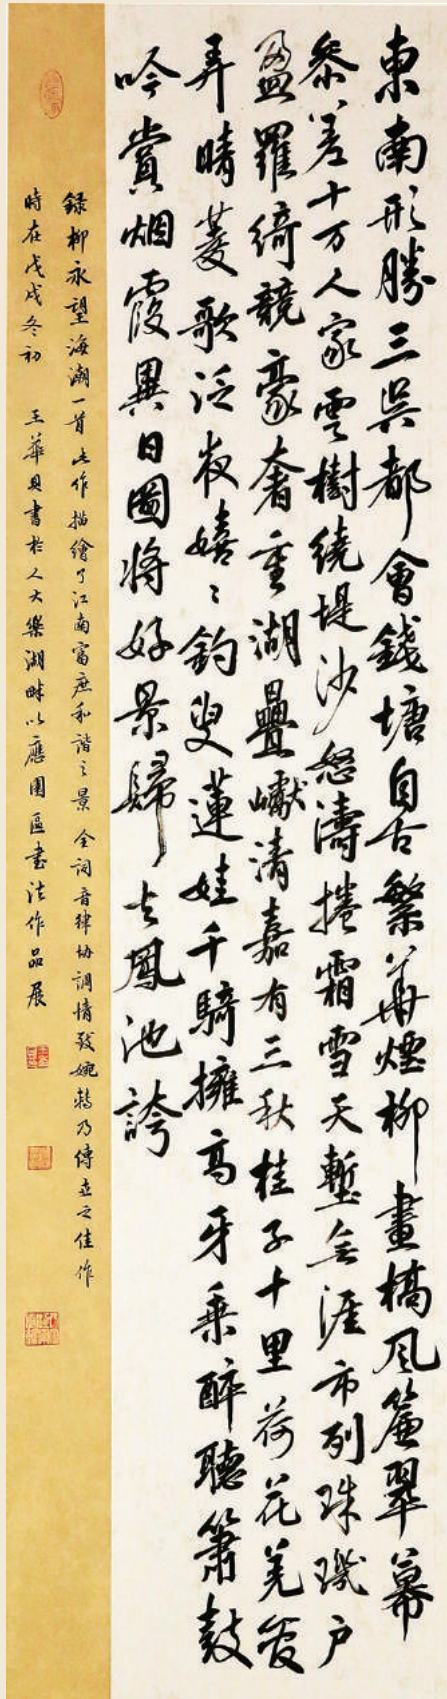 東南形勝三吳都會錢塘自古繁華煙柳畫橋風簾翠幕
參差十万人家雲樹繞堤沙怒濤捲霜雪天塹無涯市列珠璣户
盈羅綺競豪奢重湖疊巘清嘉有三秋桂子十里荷花羌管
弄晴菱歌泛夜嬉〻釣叟蓮娃千騎擁高牙乘醉聽簫鼓
吟賞烟霞異日圖將好景歸去鳳池誇
錄柳永望海潮一首 此作描繪了江南富庶和諧之景 全詞音律协調情致婉轉乃傳世之佳作
時在戊戌冬初 王華貝書於人大樂湖畔以應園區書法作品展